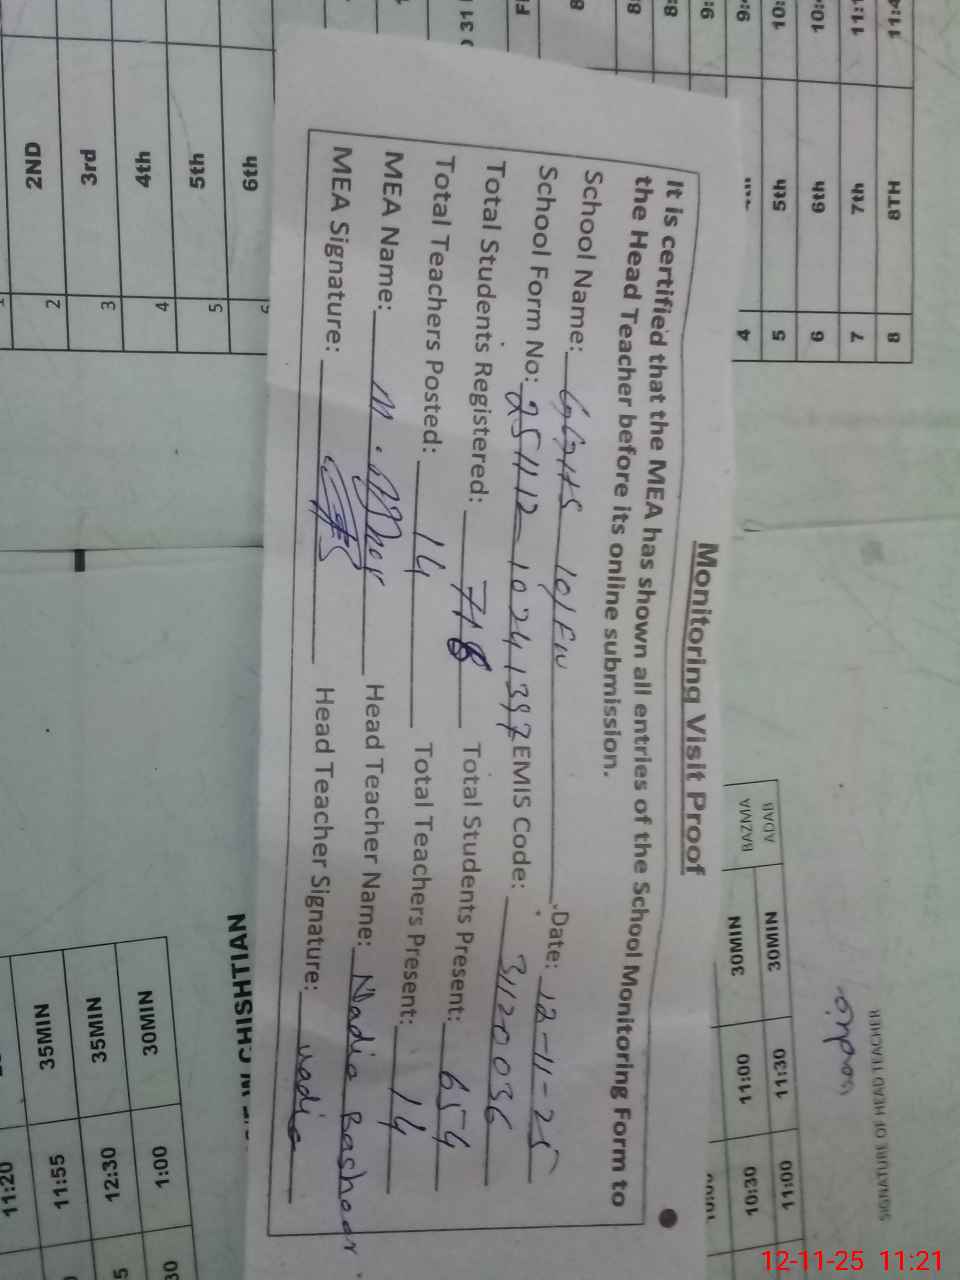 Monitoring Visit Proof
It is certified that the MEA has shown all entries of the School Monitoring Form to
the Head Teacher before its online submission.
School Name: GGHS 101/FW Date: 12-11-25
School Form No: 251112-10241397 EMIS Code: 31120036
Total Students Registered: 718 Total Students Present: 654
Total Teachers Posted: 14 Total Teachers Present: 14
MEA Name: M. Head Teacher Name: Nadia Basheer
MEA Signature: Head Teacher Signature: Nadia
8TH 8
7th 7
6th 6
5th 5
4
6th
5th 5
4th 4
3rd 3
2ND 2
SIGNATURE OF HEAD TEACHER
ADAB 30MIN 11:30 11:00
BAZMA 30MIN 11:00 10:30
CHISHTIAN
30MIN 1:00
35MIN 12:30
35MIN 11:55
11:20
12-11-25 11:21